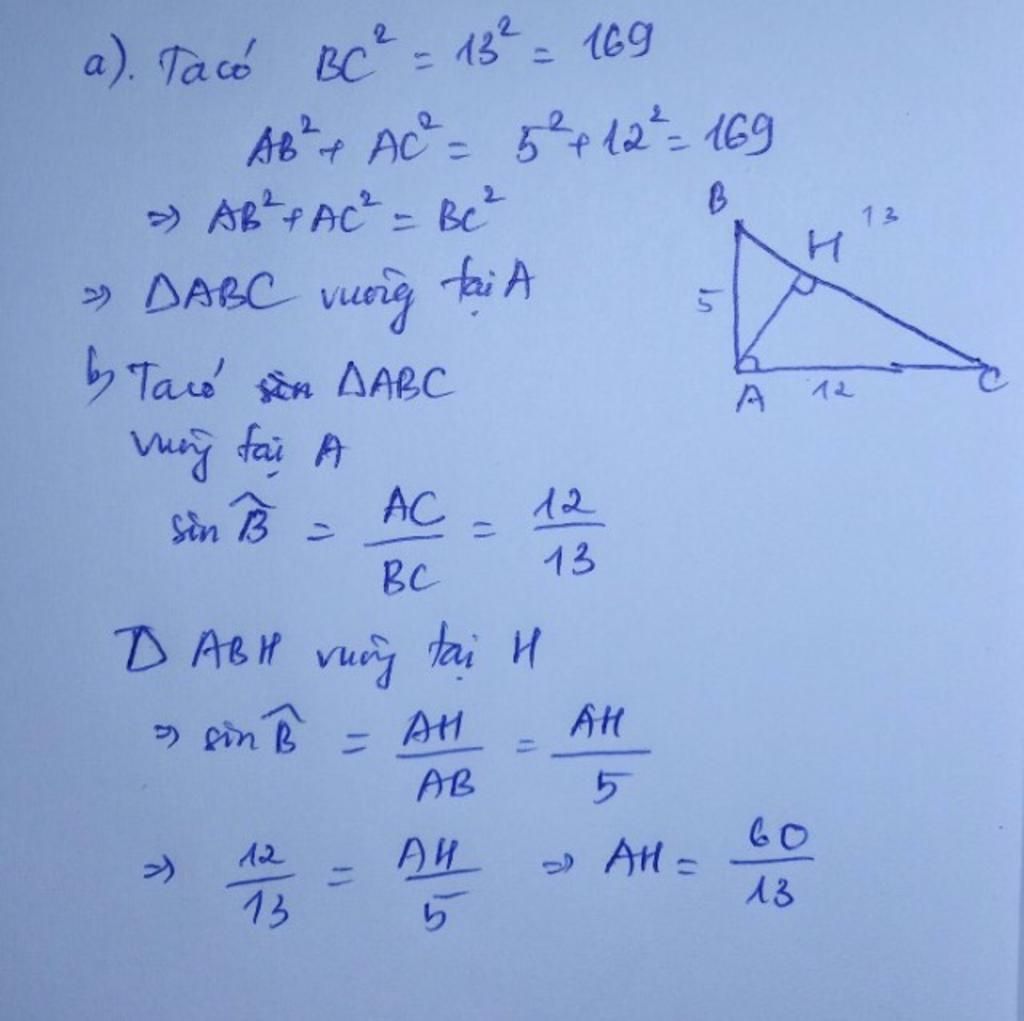 a). Ta có BC² = 13² = 169
AB² + AC² = 5² + 12² = 169
⇒ AB² + AC² = BC²
⇒ ΔABC vuông tại A
b) Ta có ΔABC
vuông tại A
sin B̂ = AC/BC = 12/13
Δ ABH vuông tại H
⇒ sin B̂ = AH/AB = AH/5
⇒ 12/13 = AH/5 ⇒ AH = 60/13
B
H
13
5
A
12
C